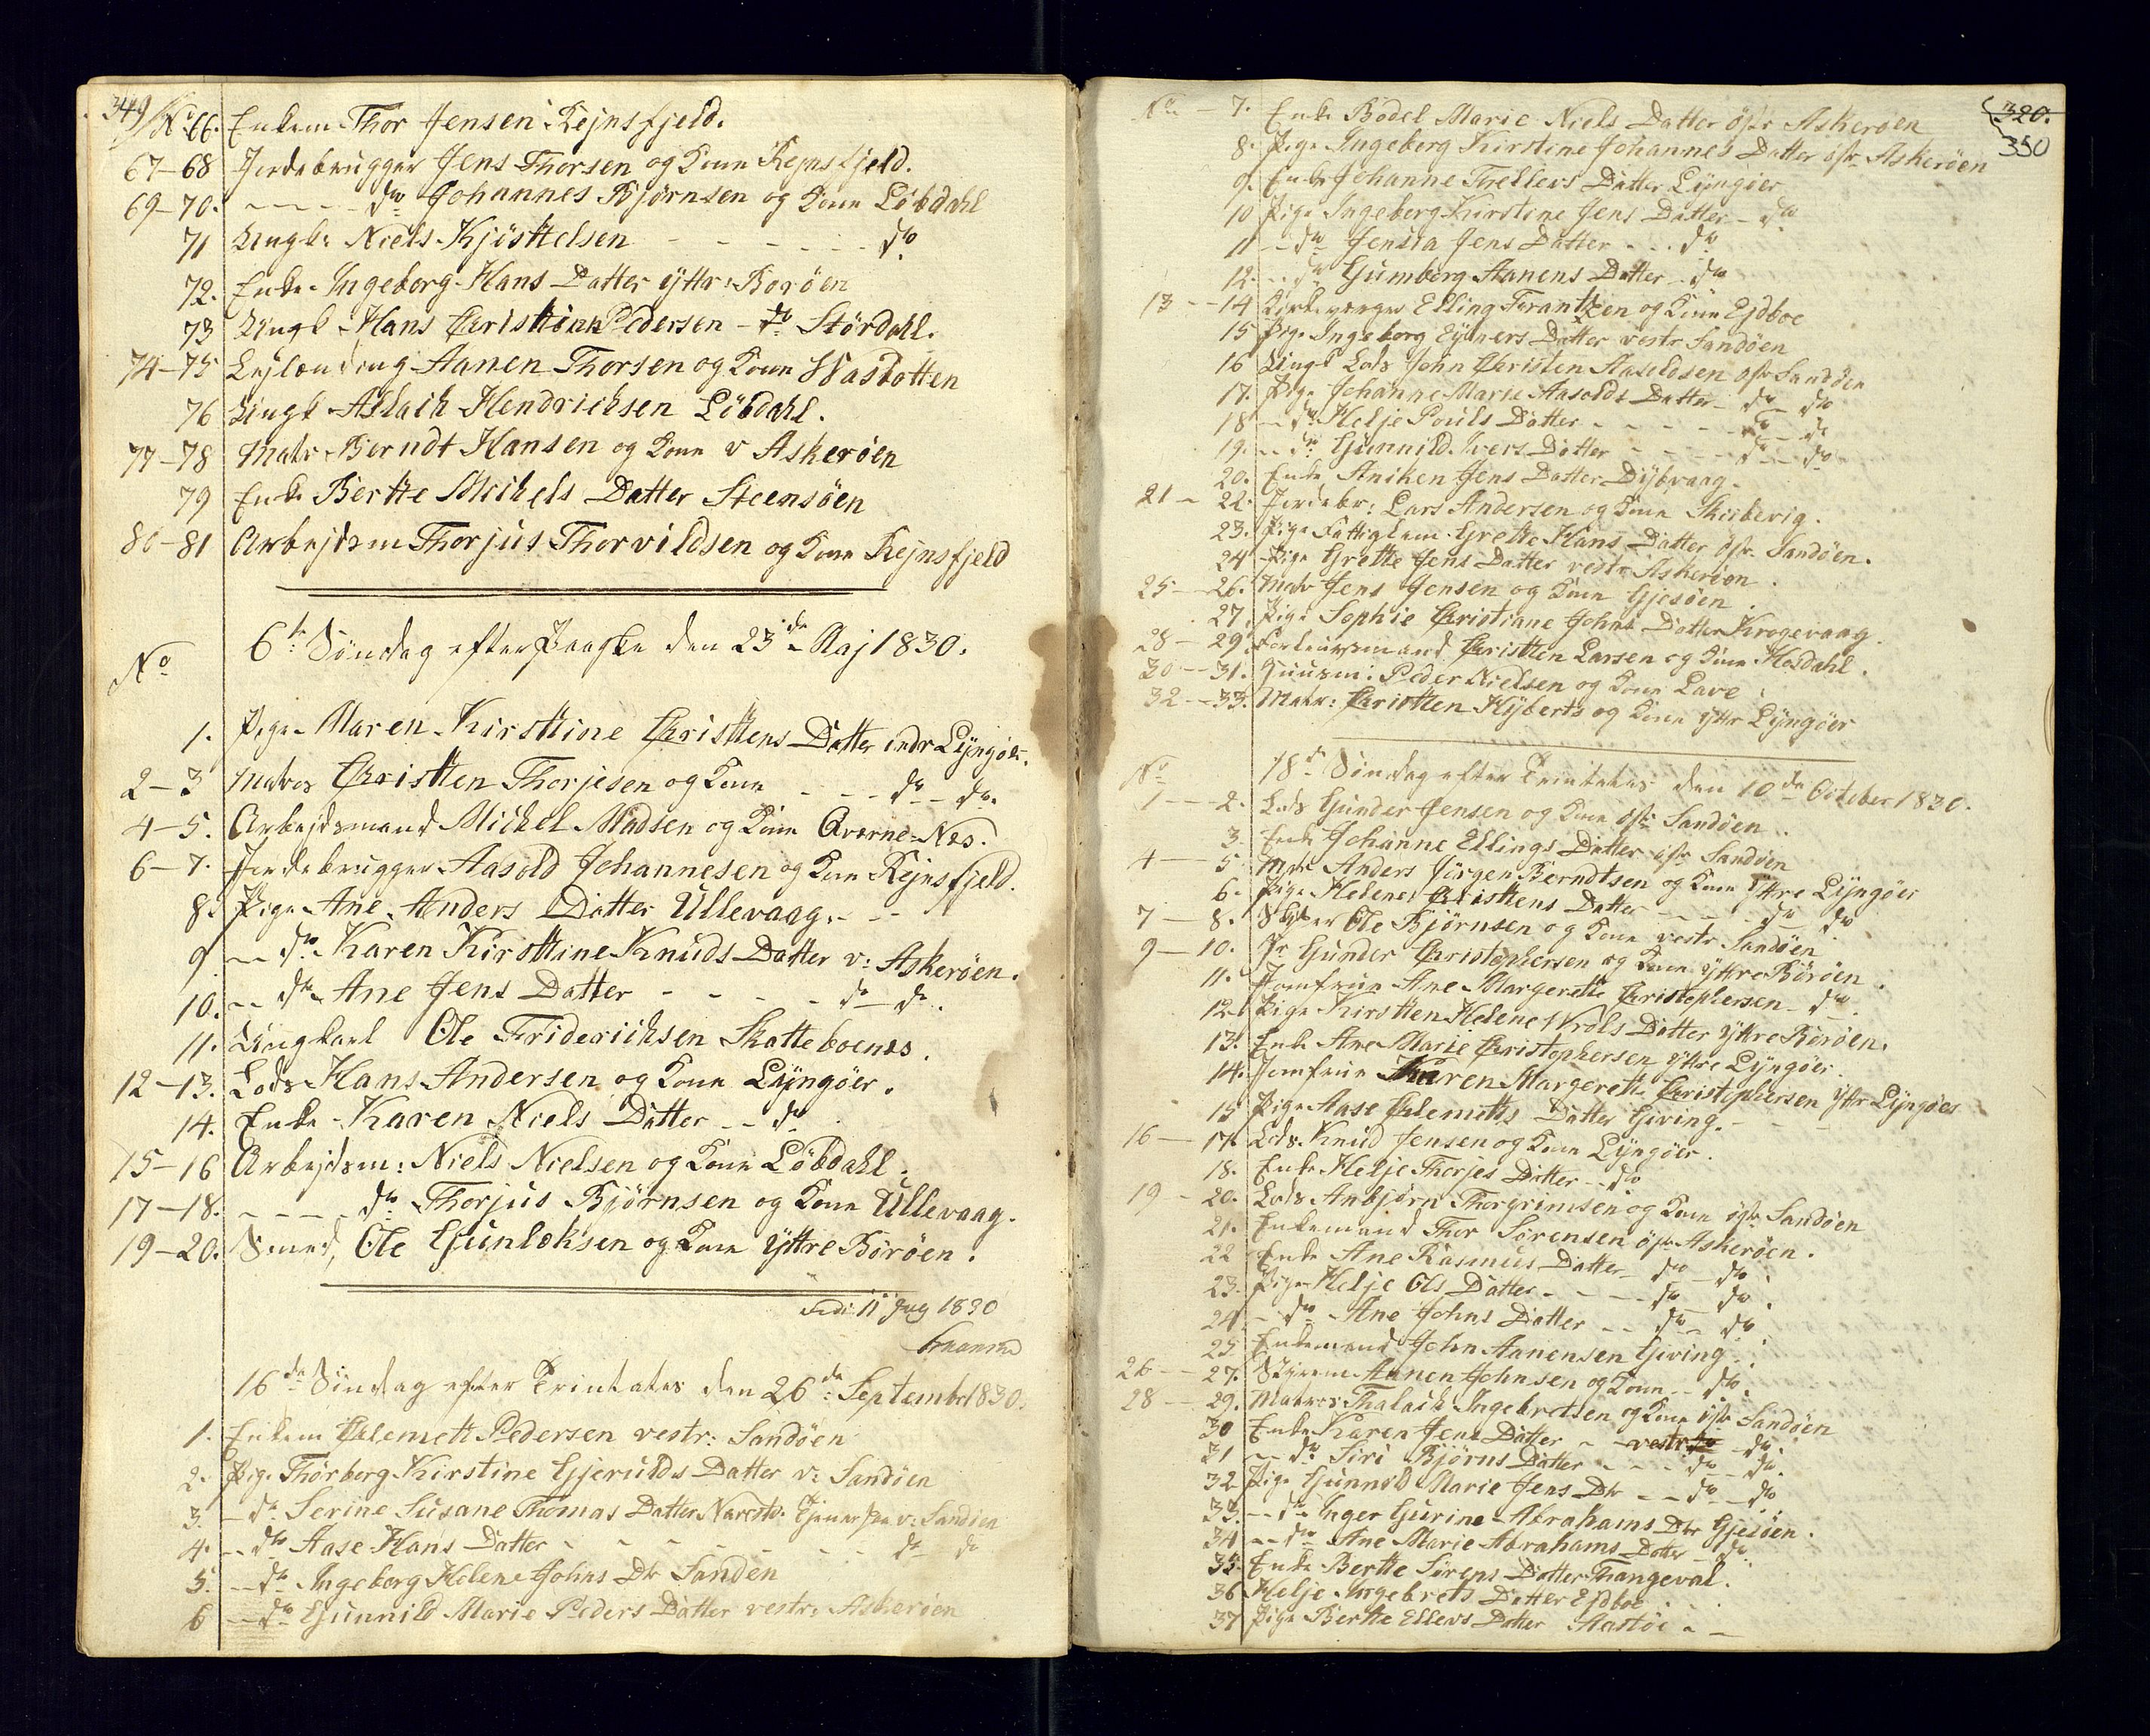 349
No 66. Enkem Thor Jensen Rejnsfjeld.
67-68 Jordebrugger Jens Thorsen og Kone Rejnsfjeld.
69-70. - - - do Johannes Bjørnsen og Kone Löbdahl
71 Ungk: Niels Kjösttelsen - - - - - - do
72. Enke Ingeborg Hans Datter ÿttr: Borøen
73 Ungk Hans Christian Pedersen - do Stördahl.
74-75 Lejlænding Aanen Thorsen og Kone Wasbotten
76 Ungk Aslach Hendrichsen Löbdahl.
77-78 Matr. Berndt Hansen og Kone v Askerøen
79 Enke Bertte Michels Datter Steensöen
80-81 Arbejdsm Thorjus Thorvildsen og Kone Rejnsfjeld
6te Söndag efter Paaske den 23de Maj 1830.
No
1. Pige Maren Kirsttine Christtens Datter indr Lÿngöer.
2-3 Matros Christten Thorjesen og Kone - - - do - do.
4-5. Arbejdsmand Michel Madsen og Kone Qværne-Næs.
6-7. Jordebrugger Aasold Johannesen og Kone Rejnsfjeld.
8. Pige Ane Anders Datter Ullevaag. - -
9 - - do Karen Kirsttine Knuds Datter v: Askerøen.
10. - - do Ane Jens Datter - - - - do - do.
11. Ungkarl Ole Friderichsen Skatteboenes.
12-13. Lods Hans Andersen og Kone Lÿngöer.
14. Enke Karen Niels Datter - - do
15-16 Arbejdsm: Niels Nielsen og Kone Löbdahl.
17-18. - - - - do Thorjus Bjørnsen og Kone Ullevaag.
19-20. Smed, Ole Gunleksen og Kone ÿttre Börøen.
11 1830
16de Söndag efter Trinitatis den 26de September 1830.
1. Enkem Clemett Pedersen vestr: Sandöen
2. Pige Thorborg Kirstine Gjerulds Datter v: Sandöen
3. - do Serine Susane Thomas Datter v: Sandöen
4. - - do Aase Hans Datter - - - - - - - do do
5. - - do Ingeborg Helene Johns Dtr Sanden
6 - - do Gunnild Marie Peders Datter vestr: Askerøen
320.
350
No - 7. Enke Bodel Marie Niels Datter östr Askerøen
8. Pige Ingeborg Kirstine Johannes Datter östr Askerøen
9. Enke Johanne Thellevs Datter Lyngöer
10 Pige Ingeborg Kirstine Jens Datter - do
11 - - do Jensia Jens Datter - - - do
12. - - do Gumborg Aanens Datter - do
13 - - 14 Kirkeværger Elling Terantzen og Kone Ejdboe
15 Pige Ingeborg Eÿvers Datter vestr Sandöen
16 Ungk Lods John Christen Aasoldsen östr Sandöen
17. Pige Johanne Marie Aasolds Datter - do - do
18 - do Helje Pouls Datter - - - - - do - do
19. - - do Gunnild Ivers Datter - - - - do - do
20. Enke Aniken Jens Datter Dÿbvaag.
21 - 22. Jordebr: Lars Andersen og Kone Skirbevig.
23. Pige Fattiglem Grette Hans Datter östr Sandöen.
24 Pige Grette Jens Datter vestr Askerøen.
25 - 26. Matr Jens Jensen og Kone Gjesöen.
27. Pige Sophie Christiane Johns Datter Krogevaag.
28 - 29. Forleuvsmand Christten Larsen og Kone Hosdahl.
30 - - 31. Huusm: Peder Nielsen og Kone Lave.
32 - - 33. Matr: Christten Hÿberts og Kone ÿttr Lÿngöer
18de Söndag efter Trinitatis den 10de October 1830.
No
1 - - - 2. Lods Gunder Jensen og Kone östr Sandöen.
3. Enke Johanne Ellings Datter östr Sandöen
4 - 5 Matr Anders Jörgen Berndtsen og Kone ÿttre Lÿngöer
6. Pige Helene Christtens Datter - - - - - do do
7 - 8. Skipper Ole Bjørnsen og Kone vestr Sandöen
9 - 10. Sr Gunder Christophersen og Kone ÿttre Börøen.
11. Jomfrue Ane Margerette Christophersen - do.
12. Pige Kirstten Helene Niels Datter ÿttre Börøen.
13. Enke Ane Marie Christophersen ÿttre Lÿngöer.
14. Jomfrue Karen Margerette Christophersen ÿttr Lÿngöer
15 Pige Aase Clemetts Datter Giving. -
16 - 17. Lods Knud Jensen og Kone Lÿngöer.
18. Enke Helje Thorjes Datter - - do
19 - 20. Lods Anbjørn Thorgrimsen og Kone östr Sandöen
21. Enkemand Thor Sörensen östr Askerøen.
22 Enke Ane Rasmus Datter - do - do.
23. Pige Helje Ols Datter - - - - do - do.
24 - do Ane Johns Datter - - do - do.
25 Enkemand John Aanensen Giving.
26 - - 27. Styrem Aanen Johnsen og Kone - - do.
28 - - 29. Matros Thalach Ingebretsen og Kone östr Sandöen
30 Enke Karen Jens Datter - vestr do - do.
31 - - do Siri Bjørns Datter - - - do - do.
32 Pige Gunnild Marie Jens Dtr - - do - do
33. - - do Inger Gurine Abrahams Dtr Gjesöen.
34 - - do Ane Marie Abrahams Datter - do.
35. Enke Bertte Sörens Datter Thangeval.
36 Helje Ingebrets Datter Ejdboe.
37 Pige Bertte Ellevs Datter Aastöe - -